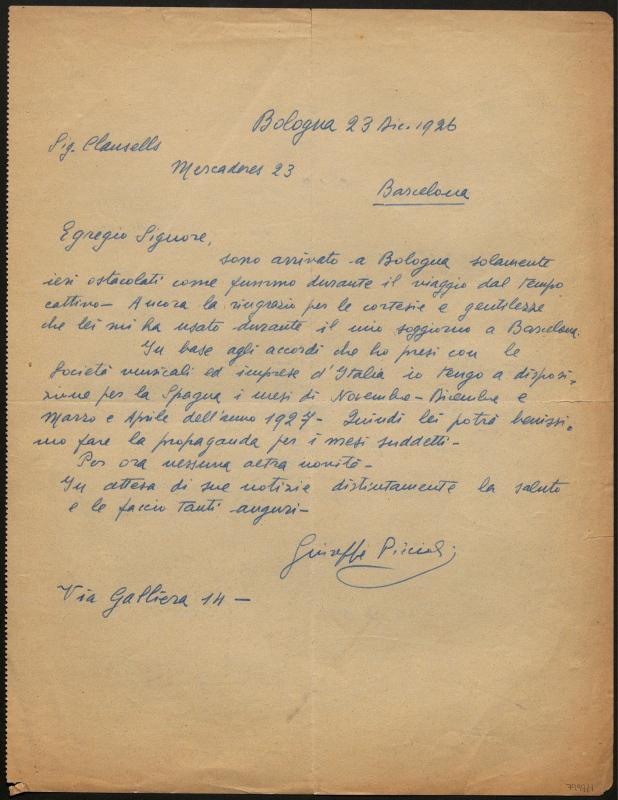 Bologna 23 Dic. 1926
Sig. Clausells
Mercaderes 23
Barcelona
Egregio Signore,
sono arrivato a Bologna solamente
ieri ostacolati come fummo durante il viaggio dal tempo
cattivo - Ancora la ringrazio per le cortesie e gentilezze
che lei mi ha usato durante il mio soggiorno a Barcelona.
In base agli accordi che ho presi con le
Società musicali ed imprese d'Italia io tengo a disposi-
zione per la Spagna i mesi di Novembre - Dicembre e
Marzo e Aprile dell'anno 1927 - Quindi lei potrà benissi-
mo fare la propaganda per i mesi suddetti -
Per ora nessuna altra novità -
In attesa di sue notizie distintamente la saluto
e le faccio tanti auguri -
Giuseppe Piccioli
Via Galliera 14 -